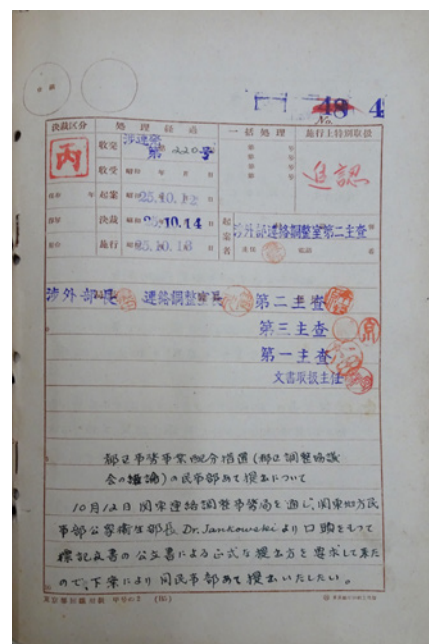 48 4
No.
決裁区分 処理経過 一括処理 施行上特別取扱
丙
收受 涉連発第220号
追認
收受 昭和 年 月 日
起案 昭和25.10.12
決裁 昭和25.10.14
施行 昭和25.10.13
起案者 涉外部連絡調整室第二主査
涉外部長 連絡調整室長 第二主査
第三主査
第一主査
文書取扱主任
都区事務事業配分措置(都区調整協議
会の結論)の民事部あて提出について
10月12日 関東連絡調整事務局を通し、関東地方民
事部公衆衛生部長 Dr. Jankowski より口頭をもつて
標記文書の公文書による正式な提出方を要求して来た
ので、下案により同民事部あて提出いたしたい。